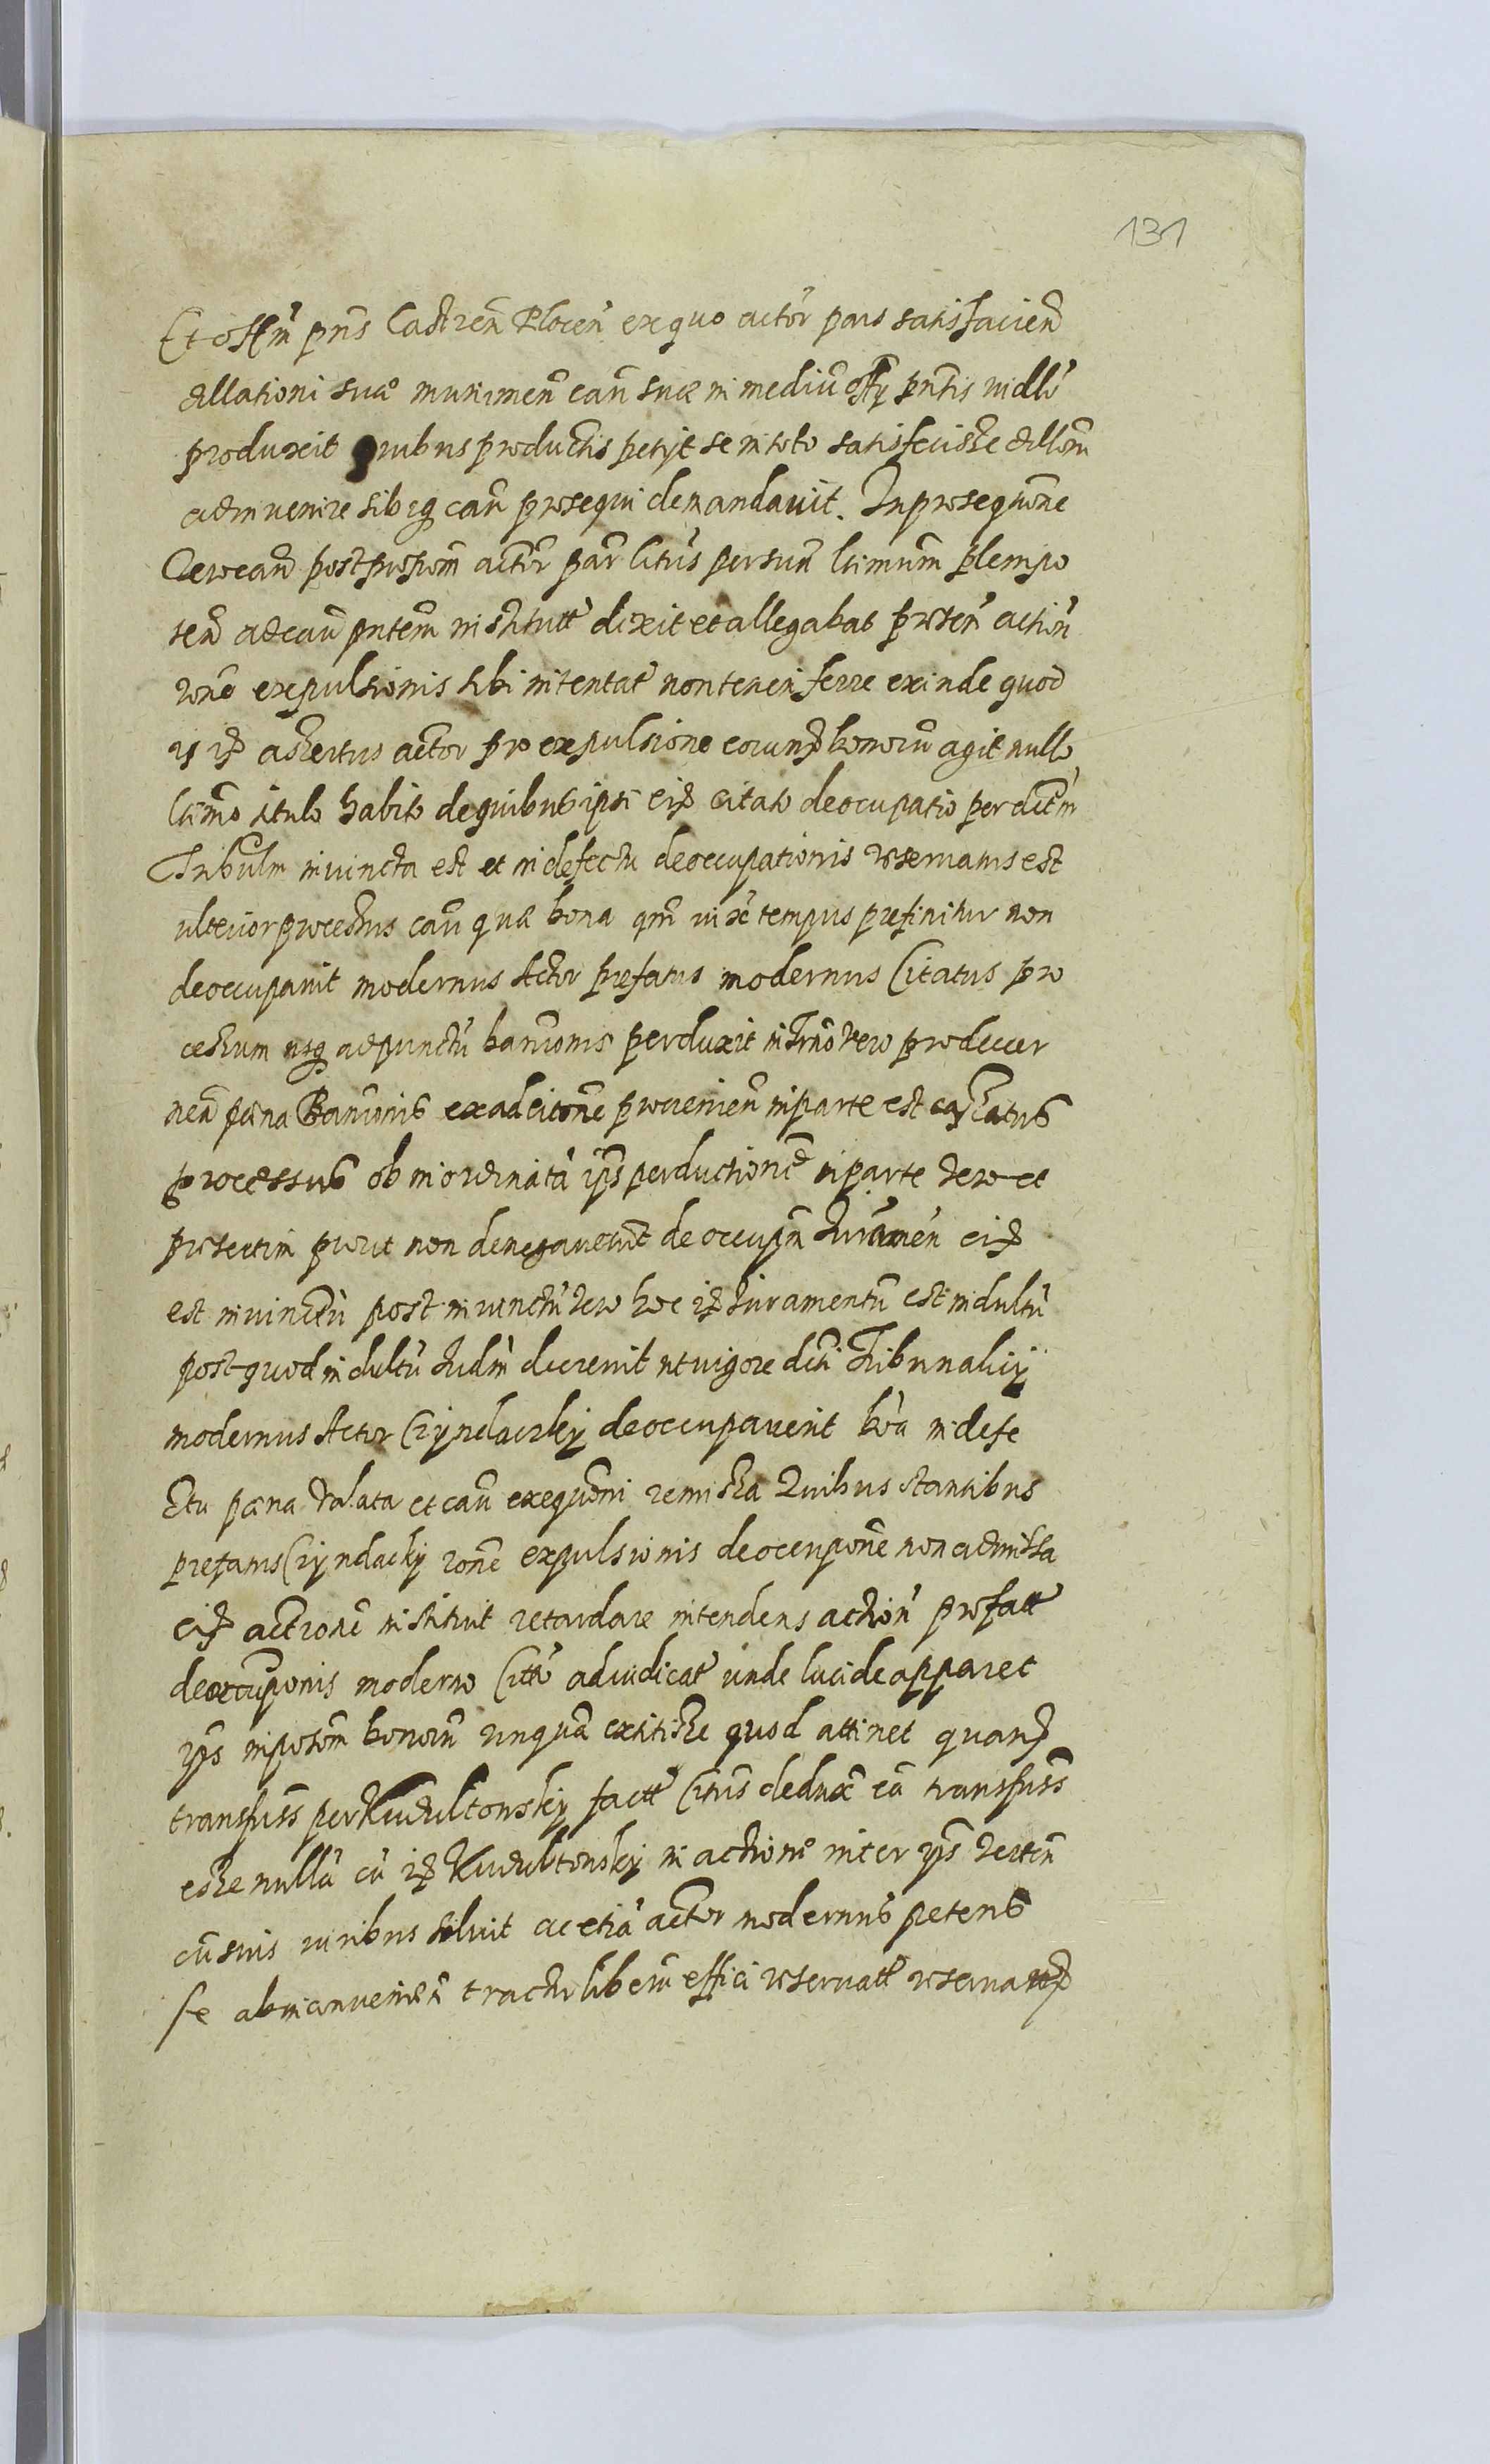 131
Et offm pns Castren Plocen ex quo actor pars satisfacien
allationi suæ munimen cau suæ in mediu offy pntis
produxit quibus productis petijt se in toto satisfecisse
adinvenire sibiq cau prosequi demandavit. In prosequone
vero cau post actor par Citus per sum ltimum plenipo
ten ad cau pntem dixit et allegabat præsen action
rone expulsionis sibi intentat non teneri ferre exinde quod
is id assertus actor pro expulsione eorund bonoru agit nullo
ltimo itulo habito de quibus ipsi eid citato deocupatio per dictm
Tribulm iniuncta est et in defectu deoccupationis reservatus est
ulterior processus cau quæ bona qm tempus prefinitur non
deoccupavit modernus Actor prefatus modernus Citatus pro
cessum usq ad punctu banionis perduxit in trno vero
pæna Bannonis ex adcitone provenien in parte est cassatus
processus ob inordinatà yps perductione in parte vero et
presertim prout non denegaverunt de occupn Iuramen eid
est post iniunctu vero hoc id Iuramentu est indultu
post quod indultu Iudm decrevit ut vigore dcti Tribunalicij
modernus Actor Cryndaczky deoccupaverit bòa in defe
ctu pæna valata et cau exequoni remissa Quibus stantibus
prefatus Cryndacky rone expulsionis deoccupone non admissa
eid actione instituit retardare intendens action prefatt
deoccuponis moderno Citto adiudicat unde lucide apparet
yps in posom bonoru unqua extitisse quod attinet quand
transfuss per Kudultowsky factt Citus dedux ea transfuss
esse nullà cù id Kudultowsky in actione inter yps
cù suis viribus solvit ac etià actor modernus petens
se ab inconvenien tractu liberu effici reservatt reservand